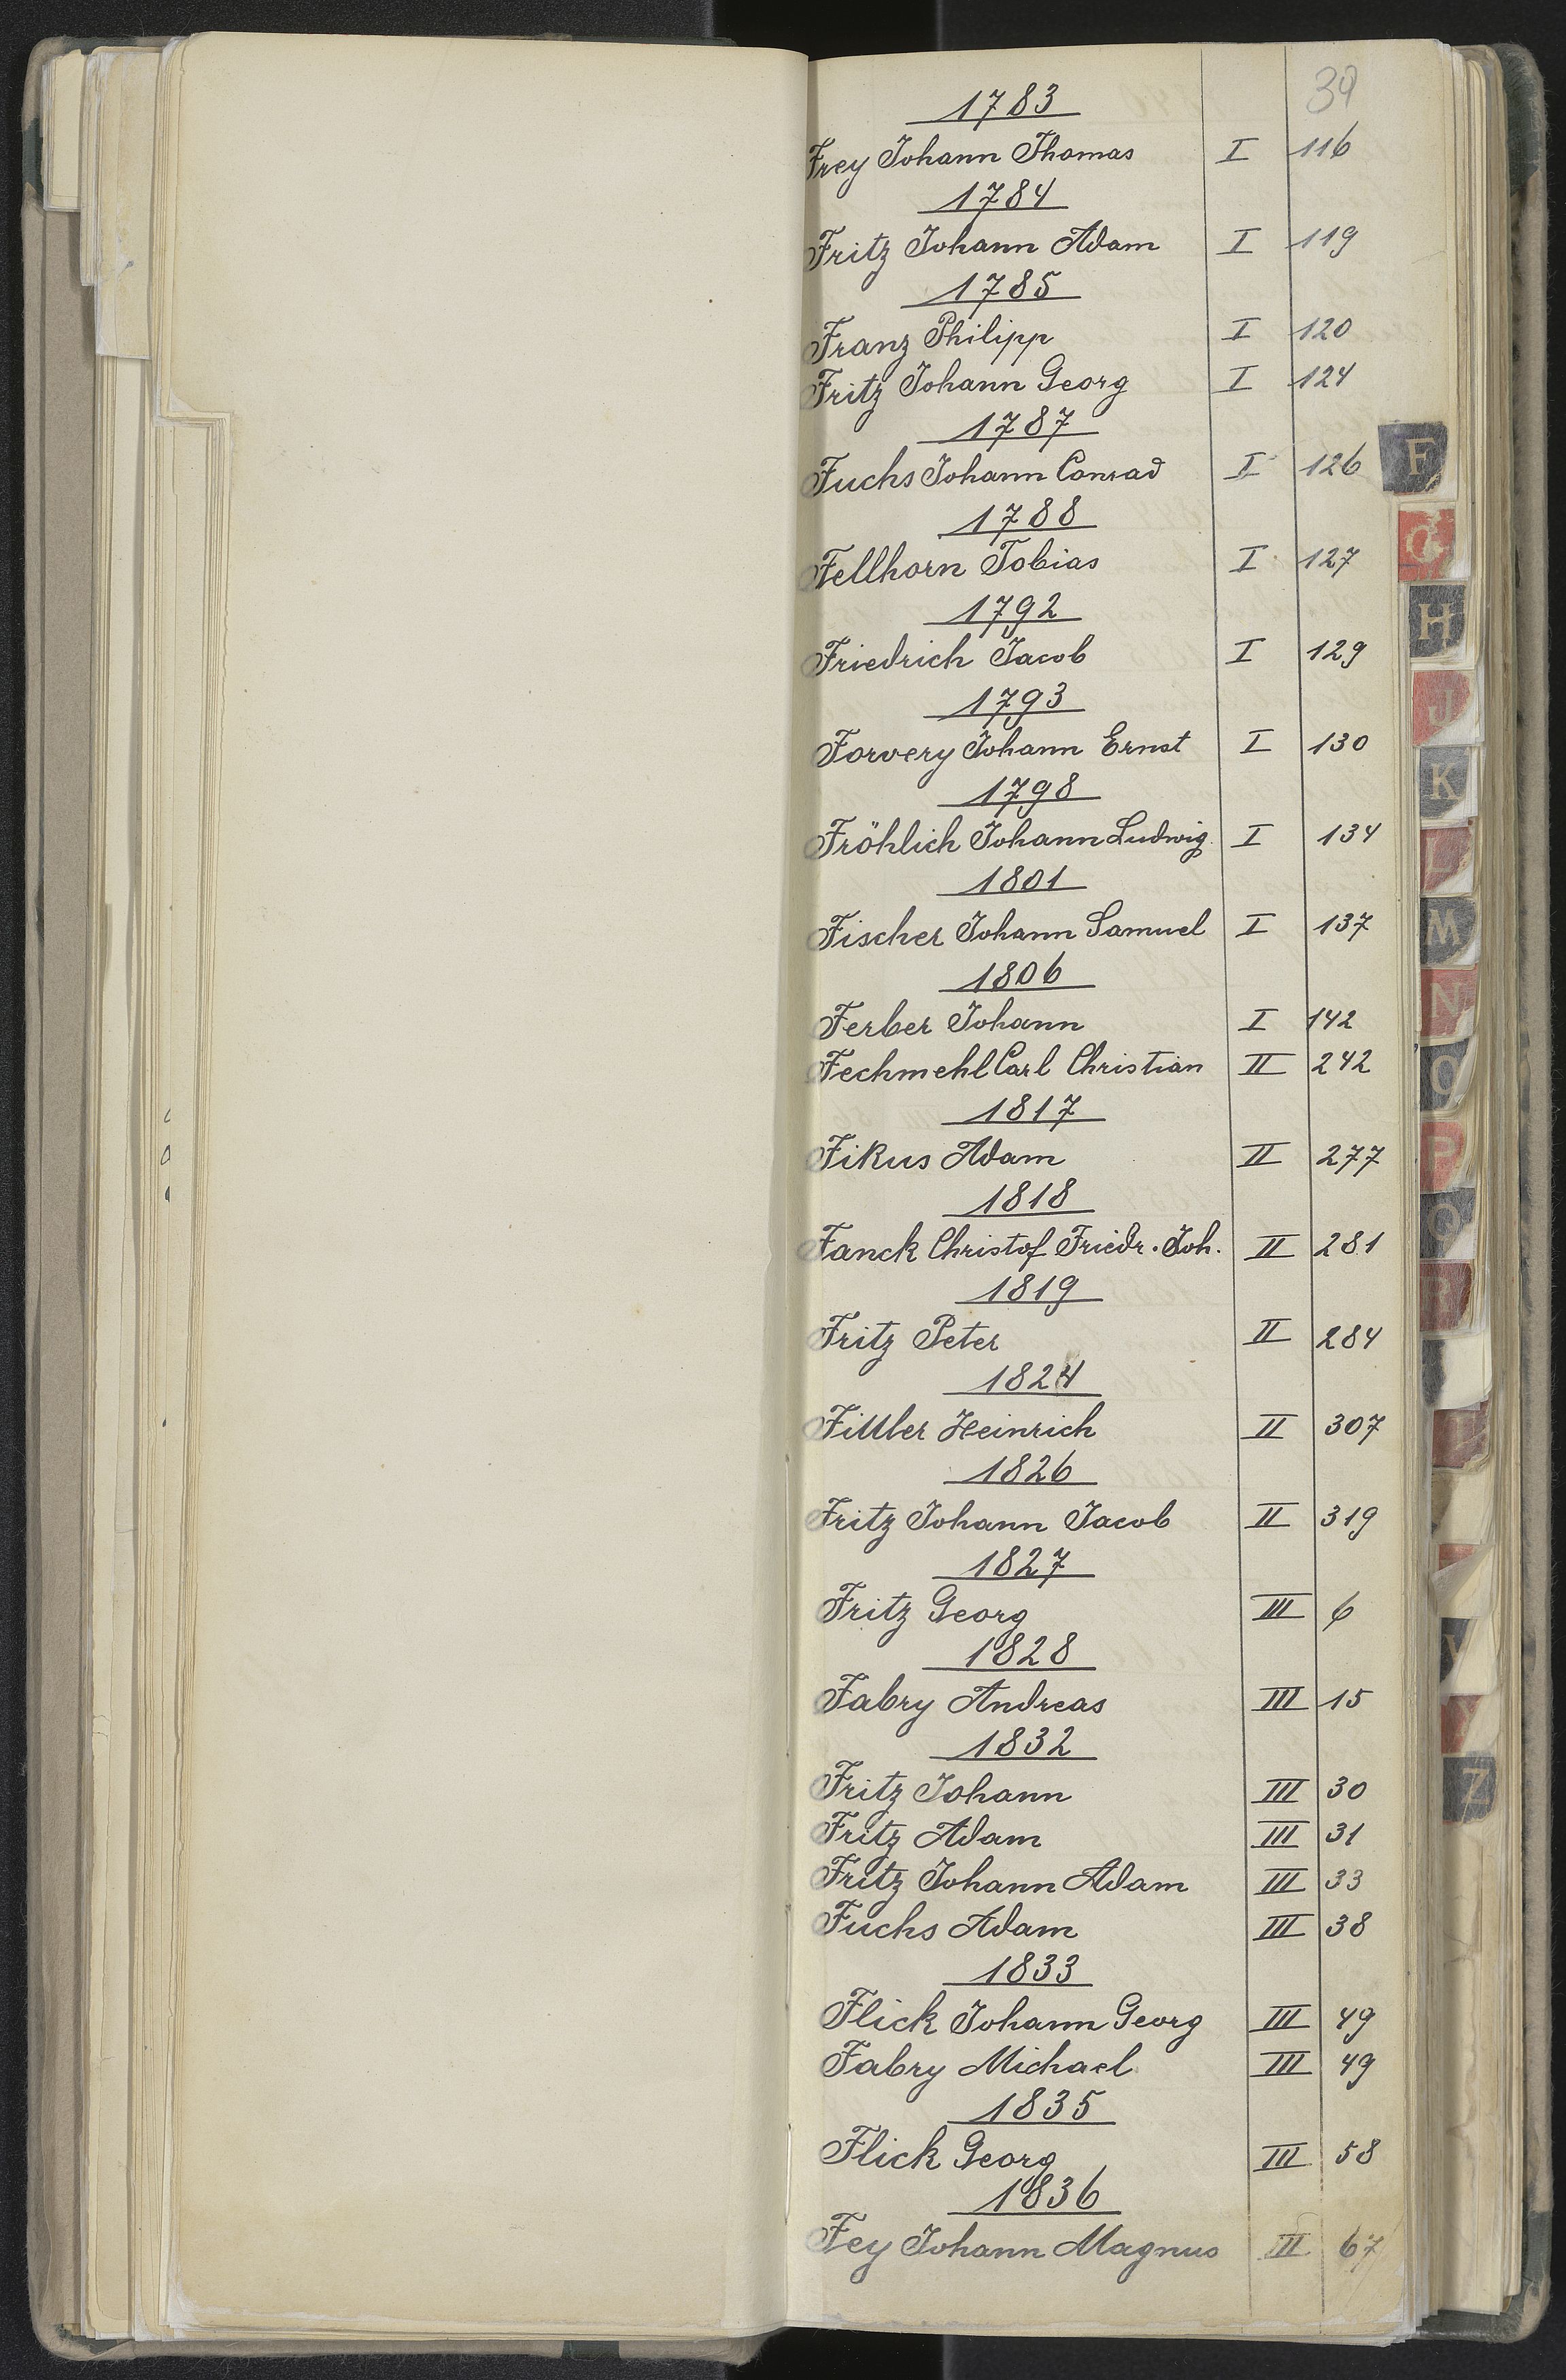 39
1783
Frey Johann Thomas I 116
1784
Fritz Johann Adam I 119
1785
Franz Philipp I 120
Fritz Johann Georg I 124
1787
Fuchs Johann Conrad I 126
1788
Fellhorn Tobias I 127
1792
Friedrich Jacob I 129
1793
Forvery Johann Ernst I 130
1798
Fröhlich Johann Ludwig I 134
1801
Fischer Johann Samuel I 137
1806
Ferber Johann I 142
Fechmehl Carl Christian II 242
1817
Fikus Adam II 277
1818
Fanck Christof Friedr. Joh. II 281
1819
Fritz Peter II 284
1824
Fittler Heinrich II 307
1826
Fritz Johann Jacob II 319
1827
Fritz Georg III 6
1828
Fabry Andreas III 15
1832
Fritz Johann III 30
Fritz Adam III 31
Fritz Johann Adam III 33
Fuchs Adam III 38
1833
Flick Johann Georg III 49
Fabry Michael III 49
1835
Flick Georg III 58
1836
Fey Johann Magnus III 67
F
G
H
J
K
L
M
N
O
P
Q
R
Z